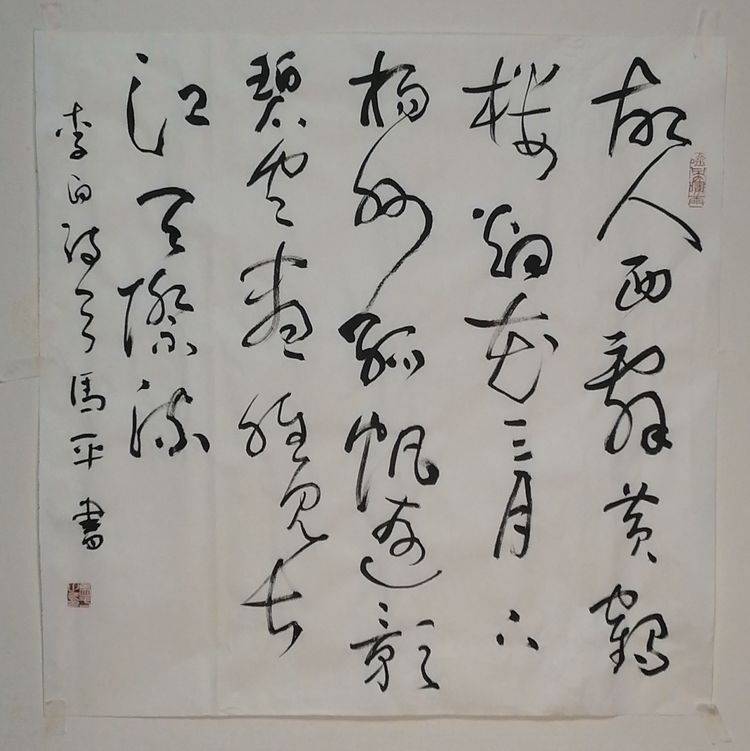 故人西辭黄鶴
樓烟花三月下
楊州孤帆遠影
碧空盡唯見長
江天際流
李白詩馬平書